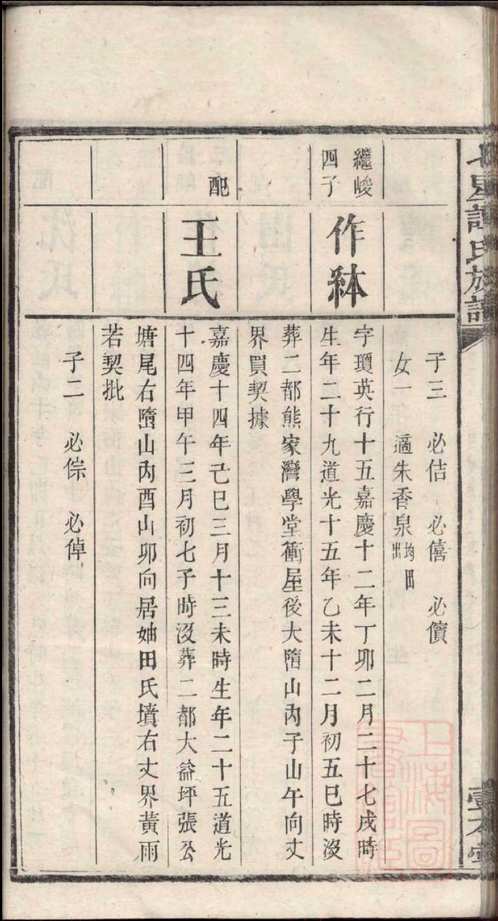 子三 必佶 必僖 必儥
女一 適朱香泉 均田出
繼峻四子
作鉢
字瓊英行十五嘉慶十二年丁卯二月二十七戌時
生年二十九道光十五年乙未十二月初五巳時沒
葬二都熊家灣學堂衝屋後大隋山內子山午向丈
界買契據
配
王氏
嘉慶十四年己巳三月十三未時生年二十五道光
十四年甲午三月初七子時沒葬二都大益坪張公
塘尾右隋山內酉山卯向居妯田氏墳右丈界黃雨
若契批
子二 必倧 必倬
氏族譜
壹本堂
上海圖書館藏